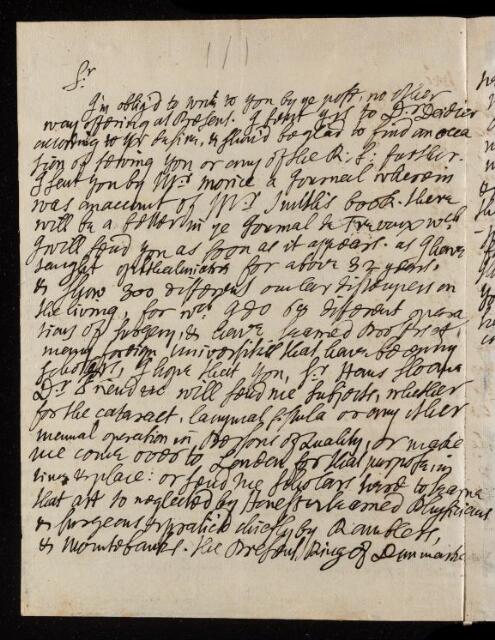 111
Sr
I'm oblig'd to write to you by ye post, no other
way offering at Present. I sent yrs to Dr Deidier
according to yr desire, & shou'd be glad to find an occa
sion of serving you or any of the R. S: further.
I sent you by Mrs morice a Journal wherein
was an account of Mr Smith's book. there
will be a better in ye Journal de Trevoux wch
I will send you as soon as it appears. as I have
taught for above 32 years.
& shew 300 different ocular distempers on
the living, for wch I do 68 different opera
tions of surgery, & have learned Professrs,
many foreign Universities that have been my
scholars, I hope that you, Sr Hans Sloane
Dr Friend &c will send me subjects, whether
for the cataract, lacrymal fistula or any other
manual operation in Persons of Quality, or make
me come over to London for that purpose, in
time & place: or send me scholars here to learne
that art so neglected by Honest & learned Physicians
& surgeons & practic'd chiefly by Ramblers,
& Mountebanks. the Present King of Denmark